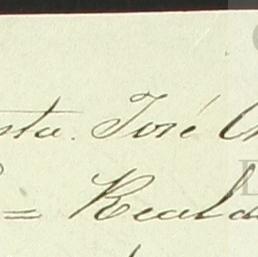 sta. José
= Real d